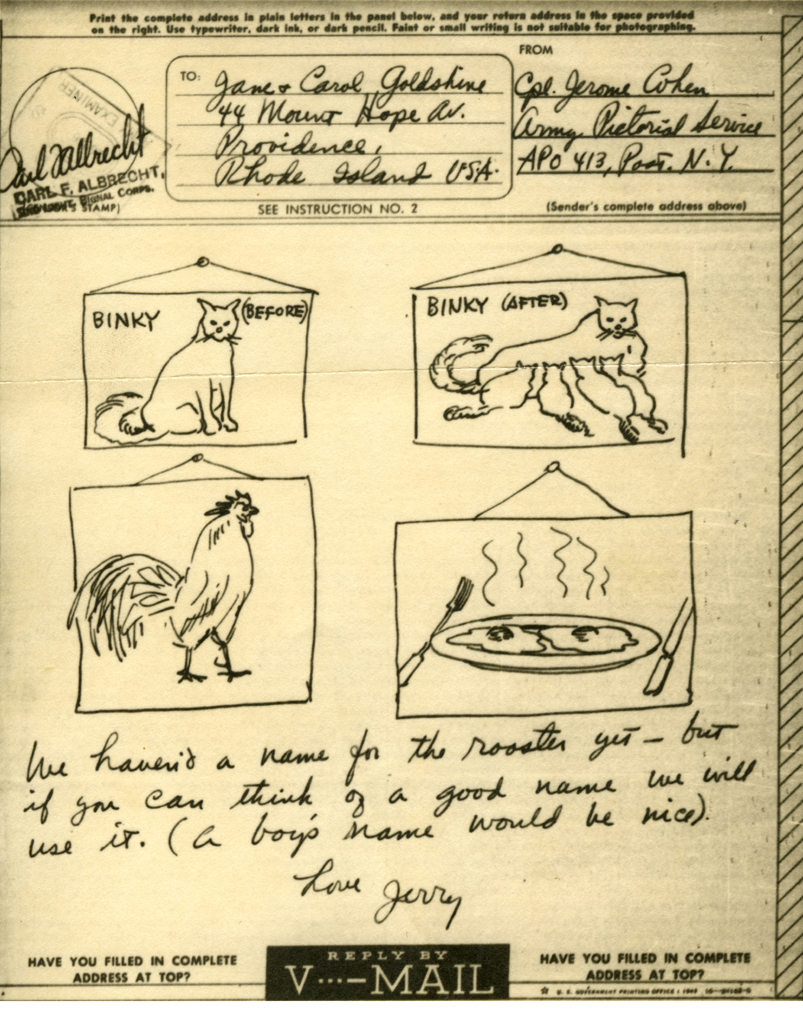 Print the complete address in plain letters in the panel below, and your return address in the space provided
on the right. Use typewriter, dark ink, or dark pencil. Faint or small writing is not suitable for photographing.
FROM
TO:
Jane & Carol Goldshine
44 Mount Hope Av.
Providence,
Rhode Island U.S.A.
Cpl. Jerome Cohen
Army Pictorial Service
APO 413, Post. N.Y.
EXAMINER
Carl F Albrecht
CARL F. ALBRECHT,
SIGNAL CORPS.
STAMP)
SEE INSTRUCTION NO. 2
(Sender's complete address above)
BINKY (BEFORE)
BINKY (AFTER)
We haven't a name for the rooster yet – but
if you can think of a good name we will
use it. (A boy's name would be nice).
Love Jerry
HAVE YOU FILLED IN COMPLETE
ADDRESS AT TOP?
REPLY BY
V···—MAIL
HAVE YOU FILLED IN COMPLETE
ADDRESS AT TOP?
☆ U. S. GOVERNMENT PRINTING OFFICE :